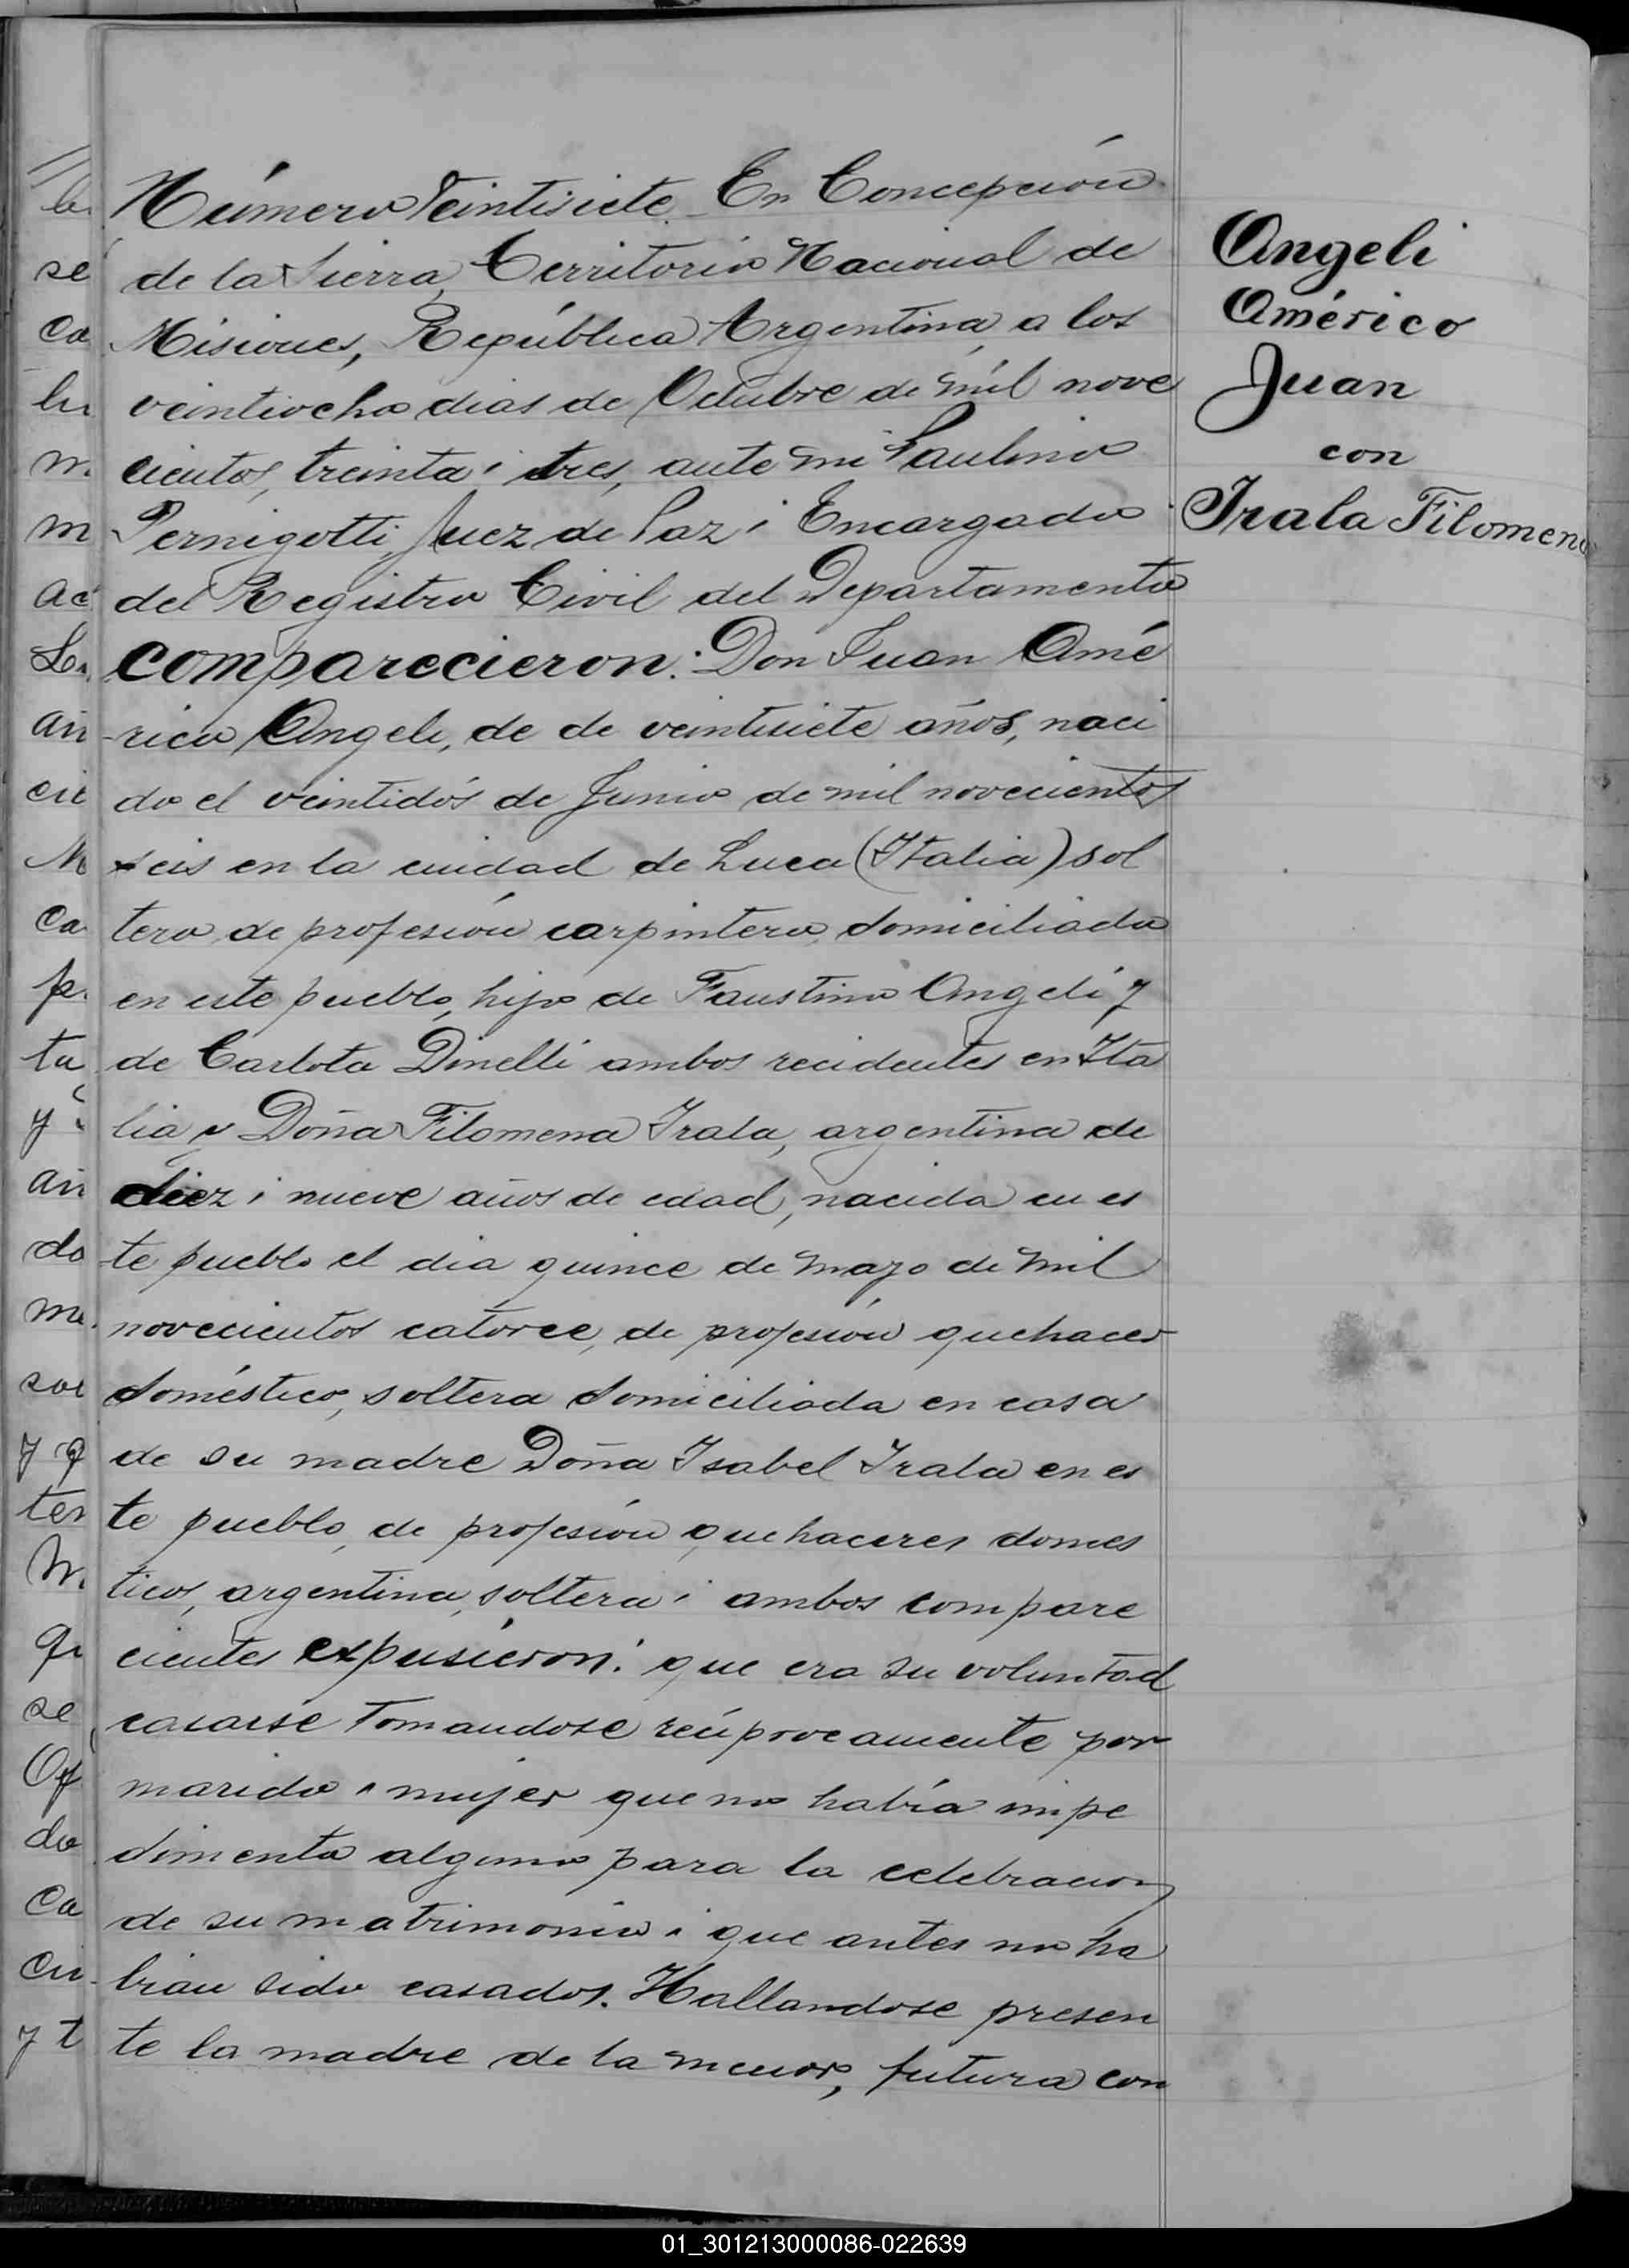 Número Veintisiete. En Concepción
de la Sierra, Territorio Nacional de
Misiones, República Argentina, a los
veintiocho dias de Octubre de mil nove
cientos, treinta i tres, ante mi Paulino
Pernigotti, Juez de Paz i Encargado
del Registro Civil del Departamento
comparecieron: Don Juan Amé
rico Angeli, de de veintisiete años, naci
do el veintidós de Junio de mil novecientos
seis en la ciudad de Luca (Italia) sol
tero, de profesión carpintero, domiciliado
en este pueblo, hijo de Faustino Angeli y
de Carlota Dinelli ambos recidentes en Ita
lia y Doña Filomena Irala, argentina de
diez i nueve años de edad, nacida en es
te pueblo el dia quince de mayo de mil
novecientos catorce, de profesión quehacer
doméstico, soltera domiciliada en casa
de su madre Doña Isabel Irala en es
te pueblo, de profesión quehaceres domes
ticos, argentina, soltera i ambos compare
cientes expusieron: que era su voluntad
casarse tomandose recíprocamente por
marido i mujer que no había impe
dimento alguno para la celebracion
de su matrimonio i que antes no ha
bian sido casados. Hallandose presen
te la madre de la menor, futura con
Angeli
Américo
Juan
con
Irala Filomena
se
ca
m
ac
an
cie
ca
tu
y
an
do
me
sol
y q
ter
se
Of
do
ca
cin
y t
01_301213000086-022639